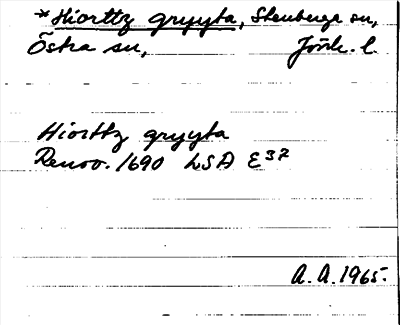 *Hiorttz gryyta, Stenberga sn,
Östra sn, Jönk. l.
Hiorttz gryyta
Renov. 1690 LSA E37
A.A. 1965.